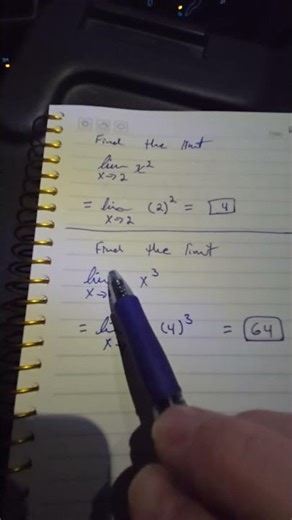 Find the limit
lim x²
x→2
= lim (2)² = 4
x→2
Find the limit
lim x³
x→
= li (4)³ = 64
x→